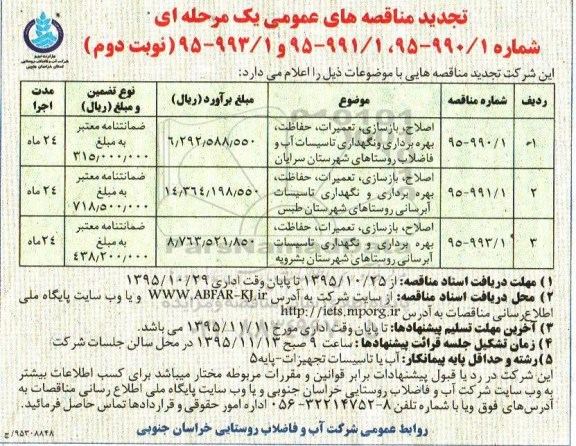 تجدید مناقصه های عمومی یک مرحله ای
شماره ۹۵-۹۹۰/۱، ۹۵-۹۹۱/۱ و ۹۵-۹۹۳/۱ (نوبت دوم)
این شرکت تجدید مناقصه هایی با موضوعات ذیل را اعلام می دارد:
ردیف شماره مناقصه موضوع مبلغ برآورد (ریال) نوع تضمین و مبلغ (ریال) مدت اجرا
۱- ۹۵-۹۹۰/۱ اصلاح، بازسازی، تعمیرات، حفاظت، بهره برداری ونگهداری تاسیسات آب و فاضلاب روستاهای شهرستان سرایان ۶,۲۹۲,۵۸۸,۵۵۰ ضمانتنامه معتبر به مبلغ ۳۱۵,۰۰۰,۰۰۰ ۲۴ ماه
۲ ۹۵-۹۹۱/۱ اصلاح، بازسازی، تعمیرات، حفاظت، بهره برداری و نگهداری تاسیسات آبرسانی روستاهای شهرستان طبس ۱۴,۳۶۴,۱۹۸,۵۵۰ ضمانتنامه معتبر به مبلغ ۷۱۸,۵۰۰,۰۰۰ ۲۴ ماه
۳ ۹۵-۹۹۳/۱ اصلاح، بازسازی، تعمیرات، حفاظت، بهره برداری و نگهداری تاسیسات آبرسانی روستاهای شهرستان بشرویه ۸,۷۶۳,۵۲۱,۸۵۰ ضمانتنامه معتبر به مبلغ ۴۳۸,۲۰۰,۰۰۰ ۲۴ماه
۱) مهلت دریافت اسناد مناقصه: از ۱۳۹۵/۱۰/۲۵ تا پایان وقت اداری ۱۳۹۵/۱۰/۲۹
۲) محل دریافت اسناد مناقصه: از سایت شرکت به آدرس WWW.ABFAR-KJ.ir و یا وب سایت پایگاه ملی
اطلاع رسانی مناقصات به آدرس http://iets.mporg.ir
۳) آخرین مهلت تسلیم پیشنهادها: تا پایان وقت اداری مورخ ۱۳۹۵/۱۱/۱۱ می باشد.
۴) زمان تشکیل جلسه قرائت پیشنهادها: ساعت ۹ صبح ۱۳۹۵/۱۱/۱۳ در محل سالن جلسات شرکت
۵) رشته و حداقل پایه پیمانکار: آب یا تاسیسات تجهیزات-پایه۵
این شرکت در رد یا قبول پیشنهادات برابر قوانین و مقررات مربوطه مختار میباشد برای کسب اطلاعات بیشتر
به وب سایت شرکت آب و فاضلاب روستایی خراسان جنوبی و یا وب سایت پایگاه ملی اطلاع رسانی مناقصات به
آدرس‌های فوق ویا با شماره تلفن ۸-۳۲۲۱۴۷۵۲-۰۵۶ اداره امور حقوقی و قراردادها تماس حاصل فرمائید.
روابط عمومی شرکت آب و فاضلاب روستایی خراسان جنوبی
۹۵۳۰۸۸۴۸/ج